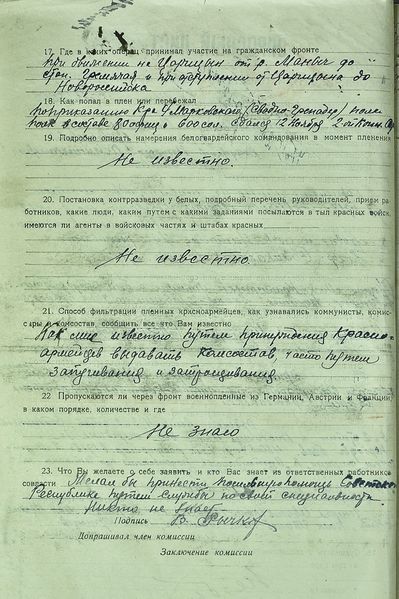 17. Где в каких операц принимал участие на гражданском фронте
при движении на Царицын от р. Маныч до
стан. Гремячая и при отступлении от Царицына до
Новороссийска
18. Как попал в плен или перебежал
по приказанию
полк в составе сдался 12 ноября 2-ой Конн.
19. Подробно описать намерения белогвардейского командования в момент пленения
Не известно.
20. Постановка контрразведки у белых, подробный перечень руководителей, прием ра
ботников, какие люди, каким путем с какими заданиями посылаются в тыл красных войск,
имеются ли агенты в войсковых частях и штабах красных
Не известно
21. Способ фильтрации пленных красноармейцев, как узнавались коммунисты, комис-
сары и комсостав, сообщить все что Вам известно
Как мне известно путем принуждения Красно-
армейцев выдавать комсостав, часто путем
запугивания и
22 Пропускаются ли через фронт военнопленные из Германии, Австрии и Франции
в каком порядке, количестве и где
Не знаю
23. Что Вы желаете о себе заявить и кто Вас знает из ответственных работников
совласти Желал бы принести помощь Советской
Республике путем службы по своей специальности.
Никто не знает
Подпись В.
Допрашивал член комиссии
Заключение комиссии